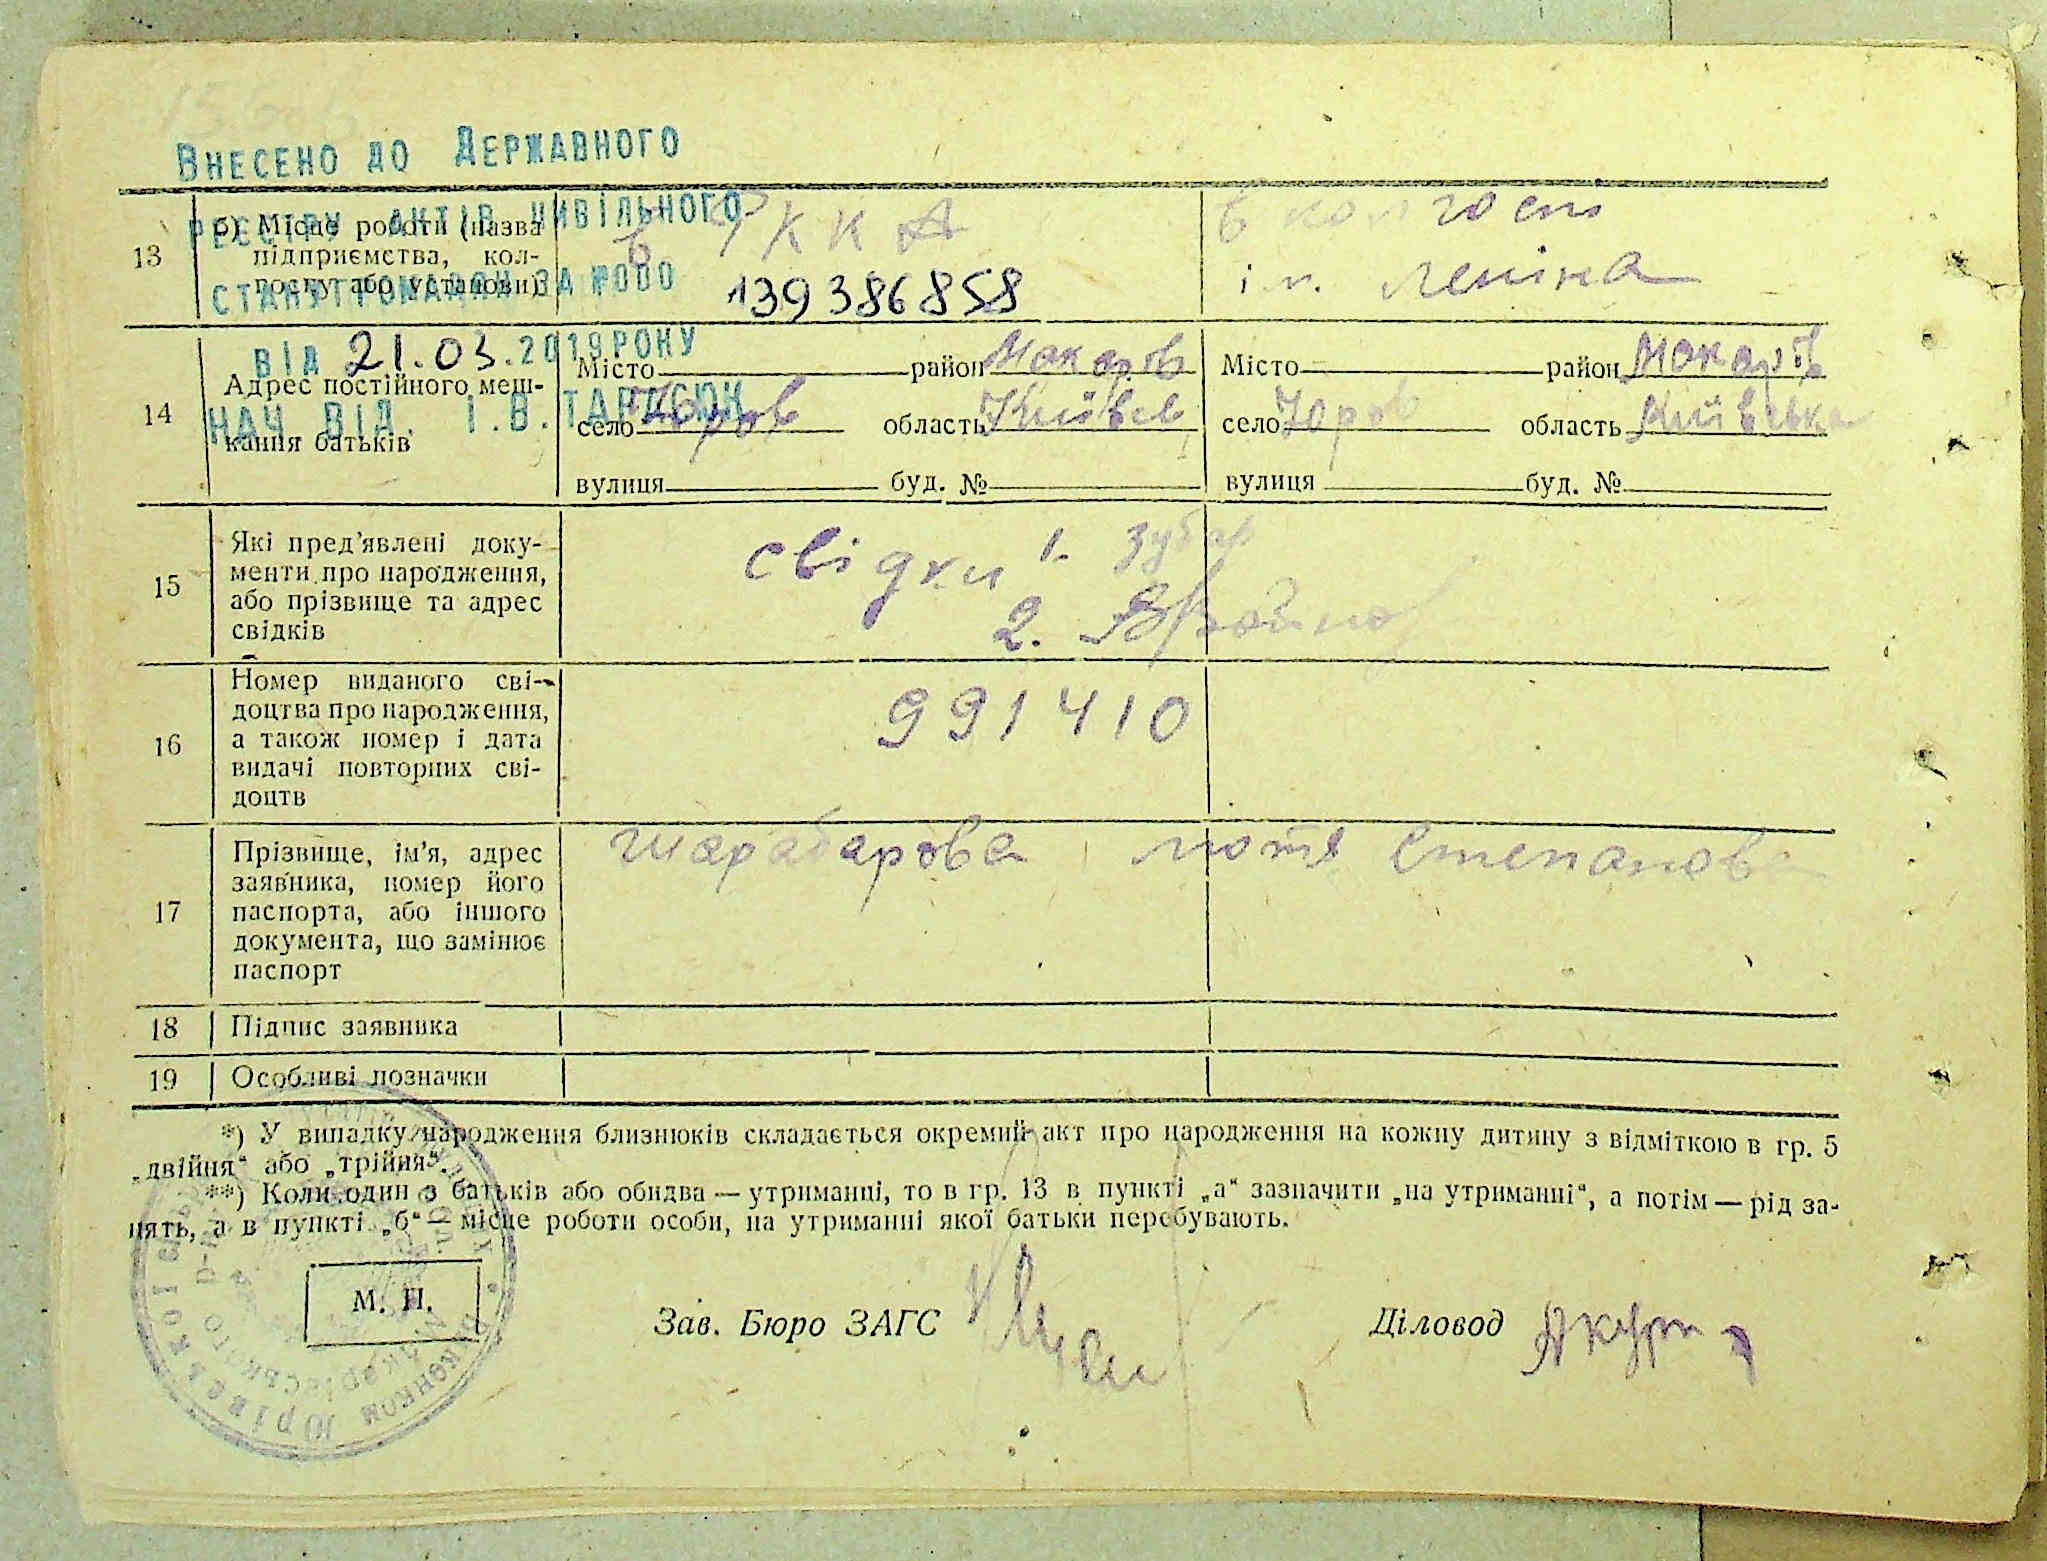 Внесено до Державного
реєстру актів цивільного
стану громадян за №000
139386858
від 21.03.2019 року
нач. від. І.В. Тарасюк
13
б) Місце роботи (назва
підприємства, кол-
госпу або установи)
в РККА
в колгоспі
ім. Леніна
14
Адрес постійного меш-
кання батьків
Місто район Макарів
село Юрів область Київсь
вулиця буд. №
Місто район Макарів
село Юрів область Київська
вулиця буд. №
15
Які пред'явлені доку-
менти про народження,
або прізвище та адрес
свідків
свідки 1.
2.
16
Номер виданого сві-
доцтва про народження,
а також номер і дата
видачі повторних сві-
доцтв
991410
17
Прізвище, ім'я, адрес
заявника, номер його
паспорта, або іншого
документа, що замінює
паспорт
Шарабарова мотя Степанова
18 Підпис заявника
19 Особливі позначки
*) У випадку народження близнюків складається окремий акт про народження на кожну дитину з відміткою в гр. 5
„двійня“ або „трійня“.
**) Коли один з батьків або обидва — утриманці, то в гр. 13 в пункті „а“ зазначити „на утриманні“, а потім — рід за-
нять, а в пункті „б“ — місце роботи особи, на утриманні якої батьки перебувають.
М. П.
Зав. Бюро ЗАГС
Діловод